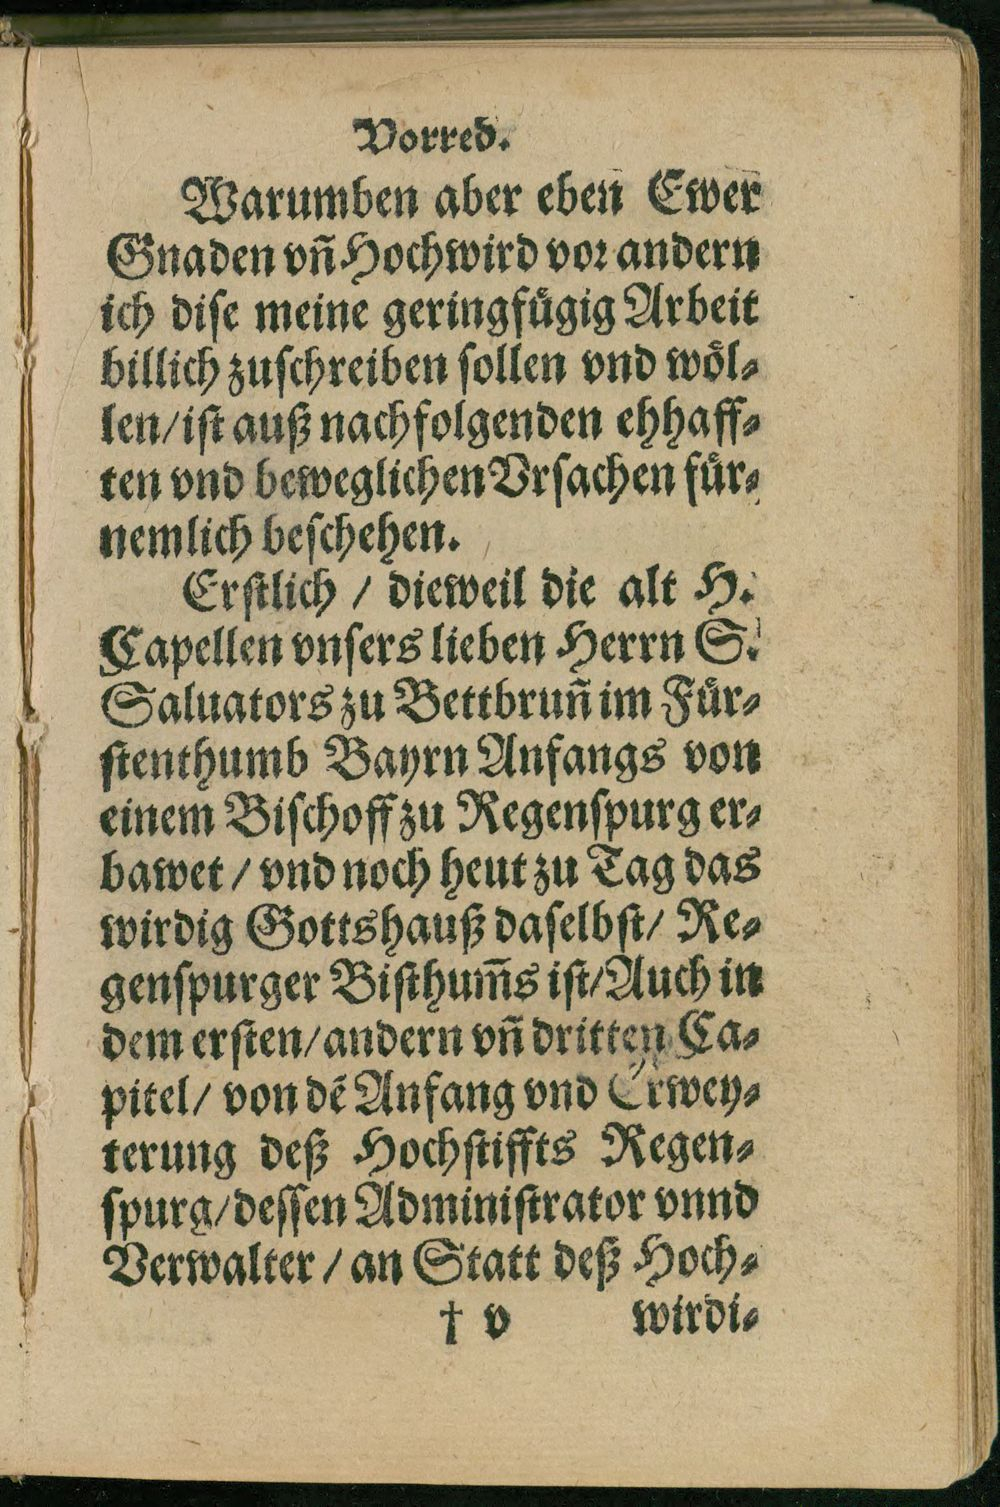 Vorred.
Warumben aber eben Ewer
Gnaden vn̄ Hochwird vor andern
ich dise meine geringfuͤgig Arbeit
billich zuschreiben sollen vnd woͤl-
len/ ist auß nachfolgenden ehhaff-
ten vnd beweglichen Vrsachen fuͤr-
nemlich beschehen.
Erstlich / dieweil die alt H.
Capellen vnsers lieben Herrn S.
Saluators zu Bettbrun̄ im Fuͤr-
stenthumb Bayrn Anfangs von
einem Bischoff zu Regenspurg er-
bawet / vnd noch heut zu Tag das
wirdig Gottshauß daselbst/ Re-
genspurger Bisthum̄s ist/ Auch in
dem ersten/ andern vn̄ dritten Ca-
pitel/ von dē Anfang vnd Erwey-
terung deß Hochstiffts Regen-
spurg/ dessen Administrator vnnd
Verwalter / an Statt deß Hoch-
† v wirdi-